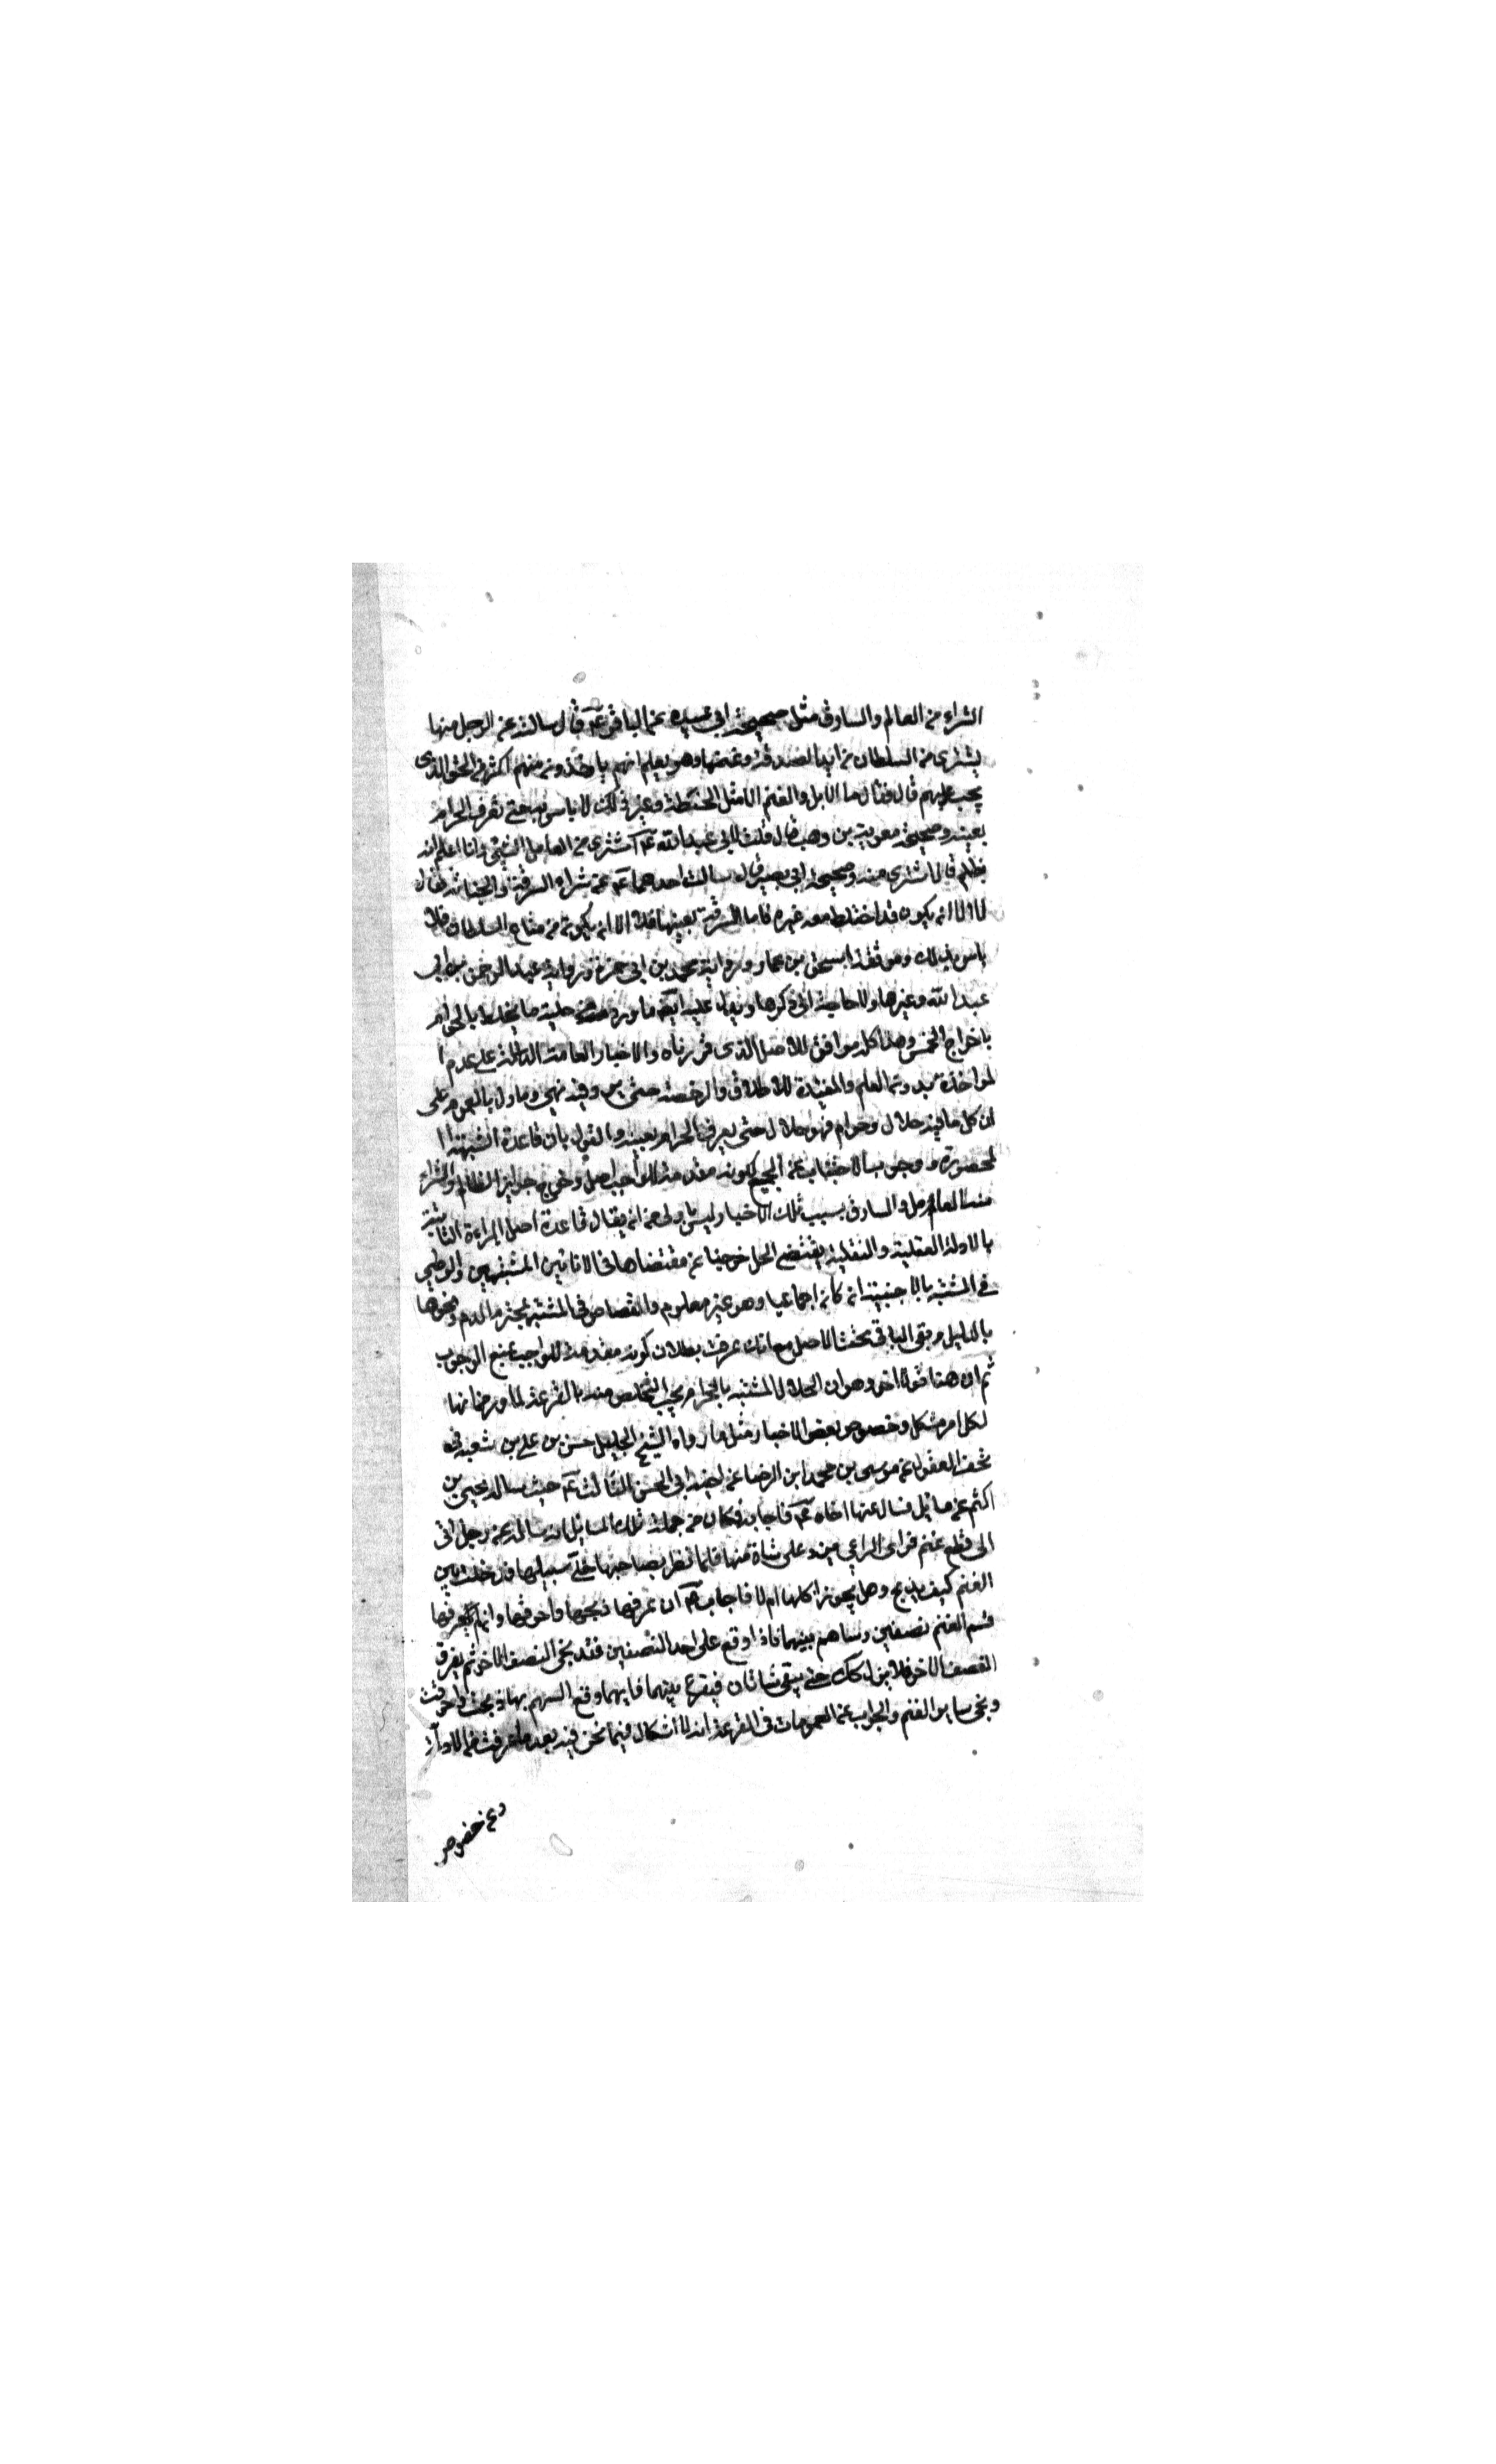 الشراء من العامل والسارق مثل صحيحة ابي عبيده عن الباقر عم قال سالته عن الرجل منها
يشترى من السلطان من ابل الصدقة وغنمها وهو يعلم انهم ياخذون منهم اكثر من الحق الذى
يجب عليهم قال فقال ما الابل والغنم الا مثل الحنطة وغير ذلك لا باس به حتى تعرف الحرام
بعينه وصحيحة معوية بن وهب قال قلت لابى عبد الله عم اشترى من العامل الشيئ وانا اعلم انه
يظلم قال اشترى منه وصحيحة ابى بصير قال سالت احدهما عم عن شراء السرقة والخيانة فقال
لا الا ان يكون قد اختلط معه غيره فاما السرقة بعينها فلا الا ان يكون من متاع السلطان فلا
باس بذلك وموثقة اسحق بن عمار ورواية محمد بن ابى حمزة ورواية عبد الرحمن بن ابى
عبد الله وغيرها ولا حاجة الى ذكرها ويدل عليه ايضا ما ورد من حلية ما يختلط بالحرام
باخراج الخمس وهذا كله موافق للاصل الذى قررناه والاخبار العامة الدالة على عدم ا
لمواخذة بدون العلم والمفيدة للاطلاق والرخصة حتى يرد فيه نهى وما دل بالعموم على
ان كل ما فيه حلال وحرام فهو حلال حتى يعرف الحرام بعينه والقول بان قاعدة الشبهة ا
لمحصورة ووجوب الاجتناب عن الجميع لكونه مقدمة للواجب اصل وخرج جوايز الظالم والشراء
من العامل والسارق بسبب تلك الاخبار ليس باولى من ان يقال قاعدة اصل البراءة الثابتة
بالادلة العقلية والنقلية يقتضى الحل خرجنا عن مقتضاها فى الانائين المشتبهين والوطى
فى المشتبه بالاجنبية ان كان اجماعيا وهو غير معلوم والقصاص فى المشتبه بمحترم الدم ونحوها
بالدليل وبقى الباقى تحت الاصل مع انك عرفت بطلان كونه مقدمة للواجب بمنع الوجوب
ثم ان هنا قولا اخر وهو ان الحلال المشتبه بالحرام يجب التخلص منه بالقرعة لما ورد من انها
لكل امر مشكل وخصوص بعض الاخبار مثل ما رواه الشيخ الجليل حسن بن على بن شعبه فى
تحف العقول عن موسى بن محمد ابن الرضا عن اخيه ابى الحسن الثالث عم حيث ساله يحيى بن
اكثم عن مسايل فسال عنها اخاه عم فاجابه فكان من جملة تلك المسايل انه ساله عن رجل اتى
الى قطيع غنم فراى الراعى ينزو على شاة منها فلما نظر بصاحبها خلى سبيلها فدخلت بين
الغنم كيف يذبح وهل يجوز اكلها ام لا فاجاب عم ان عرفها ذبحها واحرقها وان لم يعرفها
قسم الغنم نصفين وساهم بينهما فاذا وقع على احد النصفين فقد نجى النصف الاخر ثم يفرق
النصف الاخر فلا يزال كك حتى يبقى شاتان فيقرع بينهما فايهما وقع السهم بها ذبحت واحرقت
ونجى ساير الغنم والجواب عن العمومات فى القرعة انه لا اشكال فيما نحن فيه بعد ما عرفت من الادلة
وعن خصوص